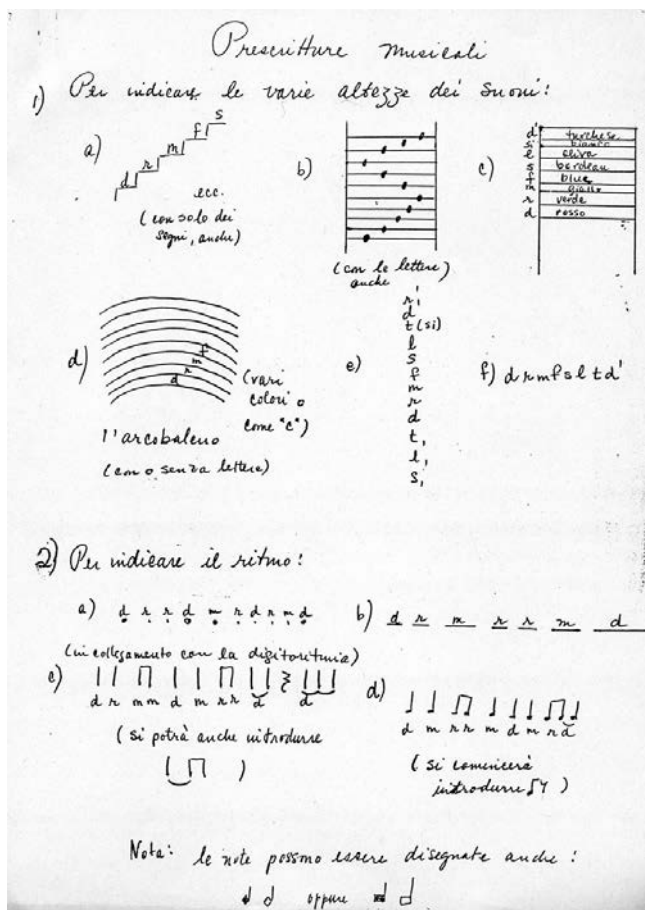 Prescritture musicali
1) Per indicare le varie altezze dei suoni:
a) d r m f s
ecc.
(con solo dei
segni, anche)
b)
(con le lettere)
anche
c)
d' turchese
si bianco
l oliva
s bordeau
f blue
m giallo
r verde
d rosso
d) d r m f
(vari
colori o
come "c")
l'arcobaleno
(con o senza lettere)
e)
r'
d'
t (si)
l
s
f
m
r
d
t,
l,
s,
f) d r m f s l t d'
2) Per indicare il ritmo:
a) d r r d m r d r m d
(in collegamento con la digitoritmia)
b) d r m r r m d
c)
d r m m d m r r d d
(si potrà anche introdurre
)
d)
d m r r m d m r d
(si comincerà
introdurre )
Nota: le note possono essere disegnate anche:
oppure